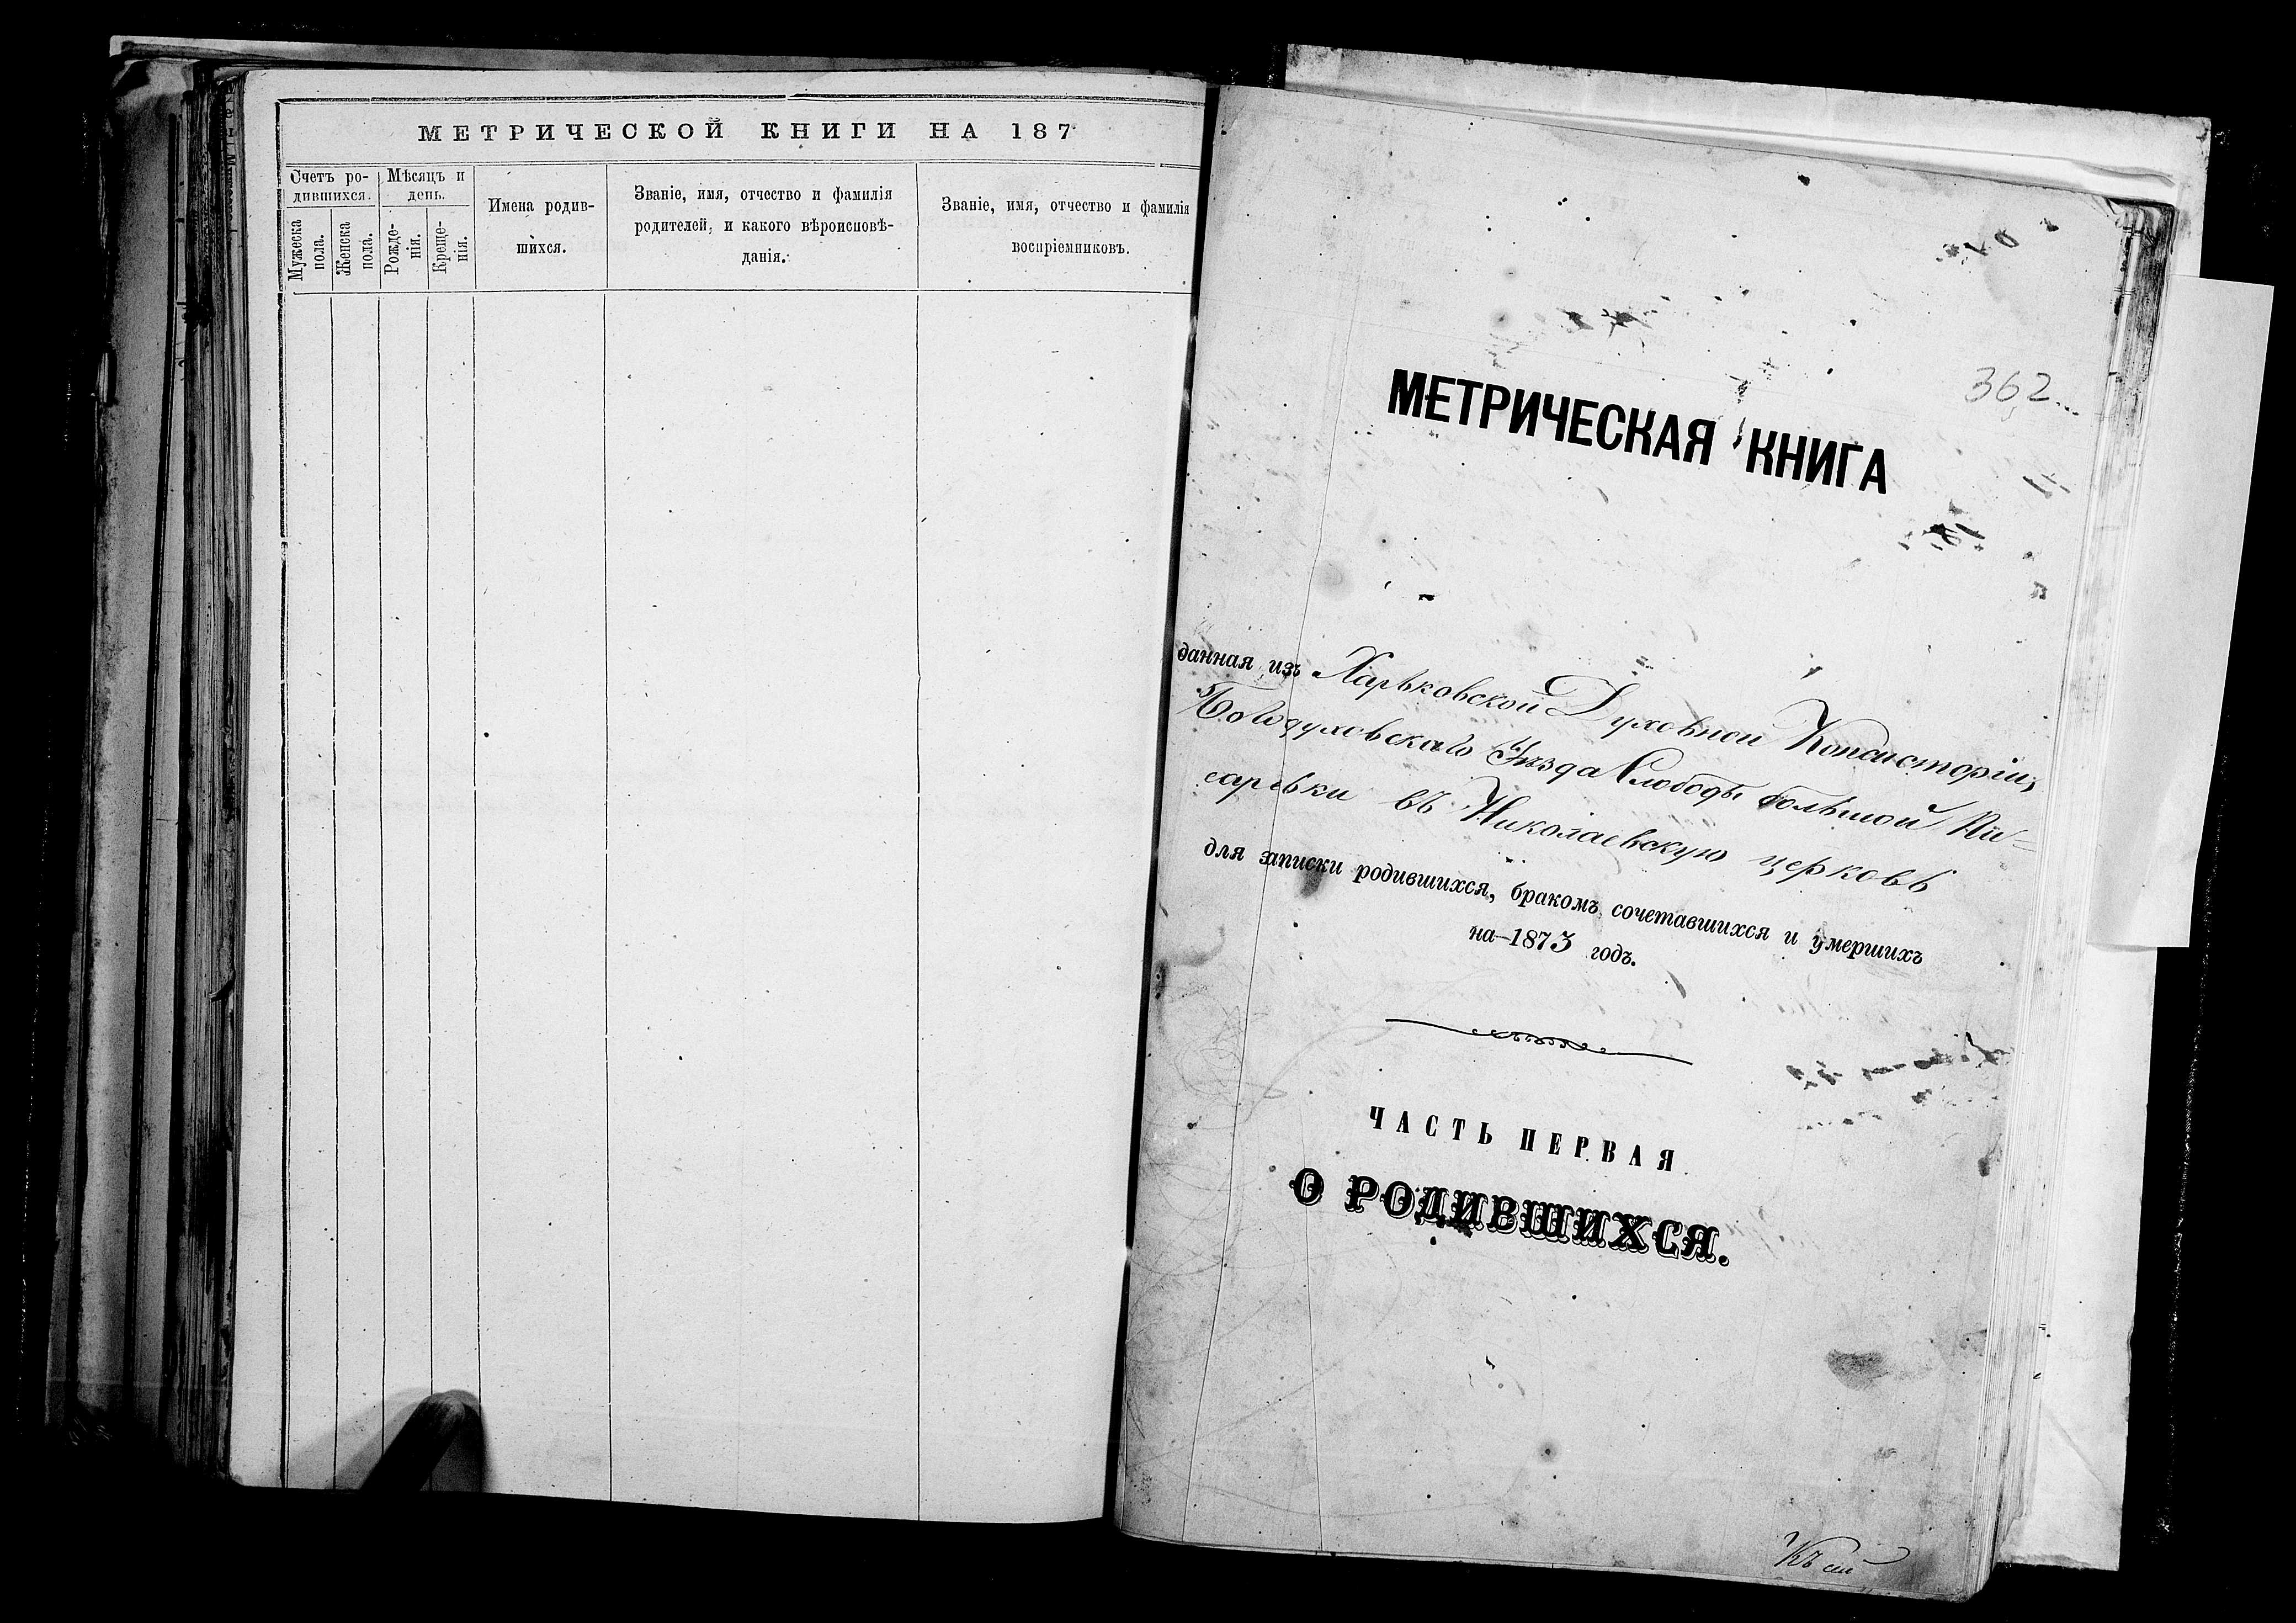 МЕТРИЧЕСКОЙ КНИГИ НА 187
Счетъ ро-
дившихся.
Мѣсяцъ и
день.
Мужеска
пола.
Женска
пола.
Рожде-
нія.
Креще-
нія.
Имена родив-
шихся.
Званіе, имя, отчество и фамилія
родителей, и какого вѣроисповѣ-
данія.
Званіе, имя, отчество и фамилія
воспріемниковъ.
362
МЕТРИЧЕСКАЯ КНИГА
данная изъ Харьковской Духовной Консисторіи,
Богодуховскаго Уѣзда Слободы большой Пи-
саревки въ Николаевскую церковь
для записки родившихся, бракомъ сочетавшихся и умершихъ
на 1873 годъ.
ЧАСТЬ ПЕРВАЯ
О РОДИВШИХСЯ.
Къ сей